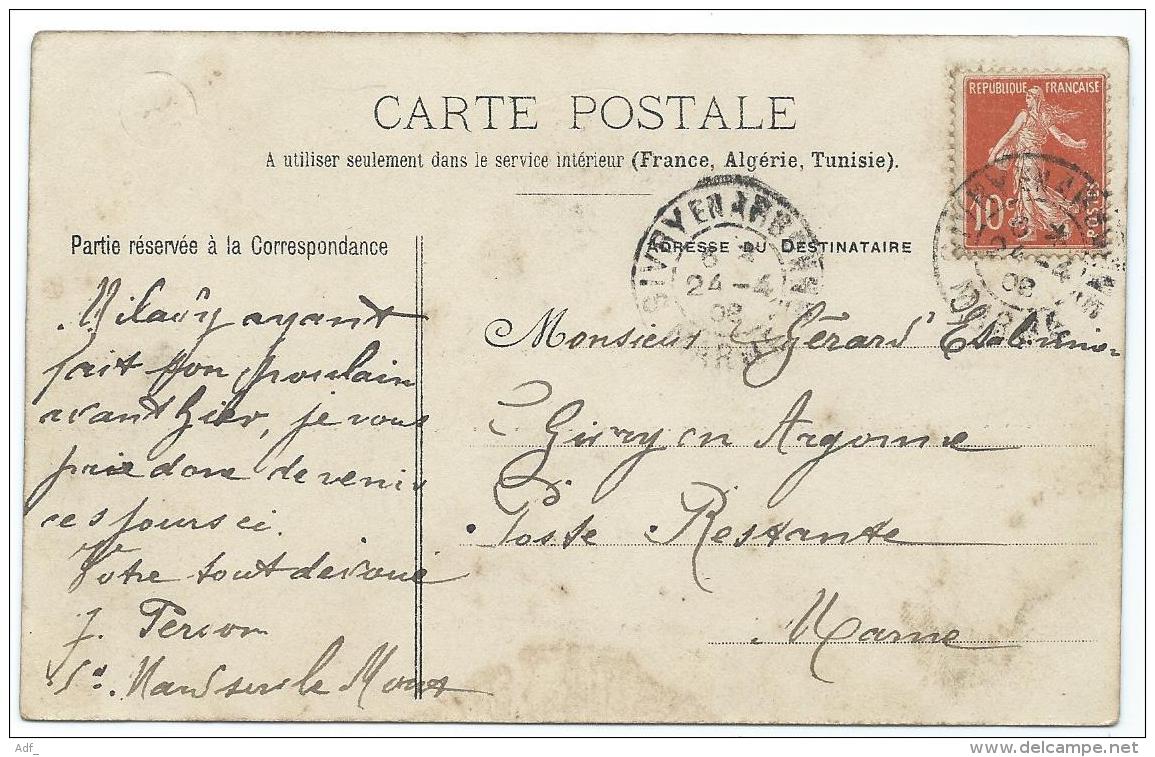 CARTE POSTALE
A utiliser seulement dans le service intérieur (France, Algérie, Tunisie).
RÉPUBLIQUE FRANÇAISE
10
POSTES
24-4
08
24-4
08
Partie réservée à la Correspondance
ayant
fait son poulain
avant hier, je vous
prie donc de venir
ces jours ci.
Votre tout dévoué
J.
le Mont
ADRESSE DU DESTINATAIRE
Monsieur Gérard
Givry en Argonne
Poste Restante
Marne
Adf_
www.delcampe.net